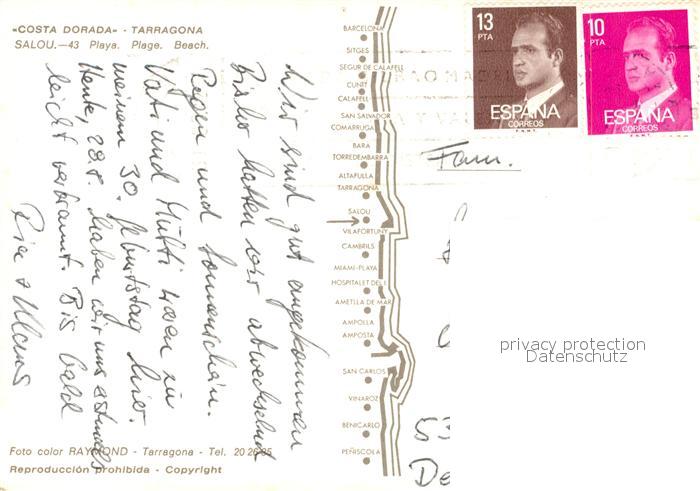 «COSTA DORADA» - TARRAGONA
SALOU.—43 Playa. Plage. Beach.
Wir sind gut angekommen
Bisher hatten wir abwechselnd
Regen und Sonnenschein.
Vati und Mutti waren zu
meinem 30. Geburtstag hier.
Heute, 28.8. haben wir uns erstmals
leicht verbrannt. Bis bald
Ria & Klaus
BARCELONA
SITGES
SEGUR DE CALAFELL
CUNIT
CALAFELL
SAN SALVADOR
COMARRUGA
BARA
TORREDEMBARRA
ALTAFULLA
TARRAGONA
SALOU
VILAFORTUNY
CAMBRILS
MIAMI-PLAYA
HOSPITALET DEL I.
AMETLLA DE MAR
AMPOLLA
AMPOSTA
SAN CARLOS
VINAROZ
BENICARLO
PEÑISCOLA
13 PTA
ESPAÑA
CORREOS
F.N.M.T.
10 PTA
ESPAÑA
CORREOS
F.N.M.T.
Fam.
53
De
privacy protection
Datenschutz
Foto color RAYMOND - Tarragona - Tel. 20 26 95
Reproducción prohibida - Copyright